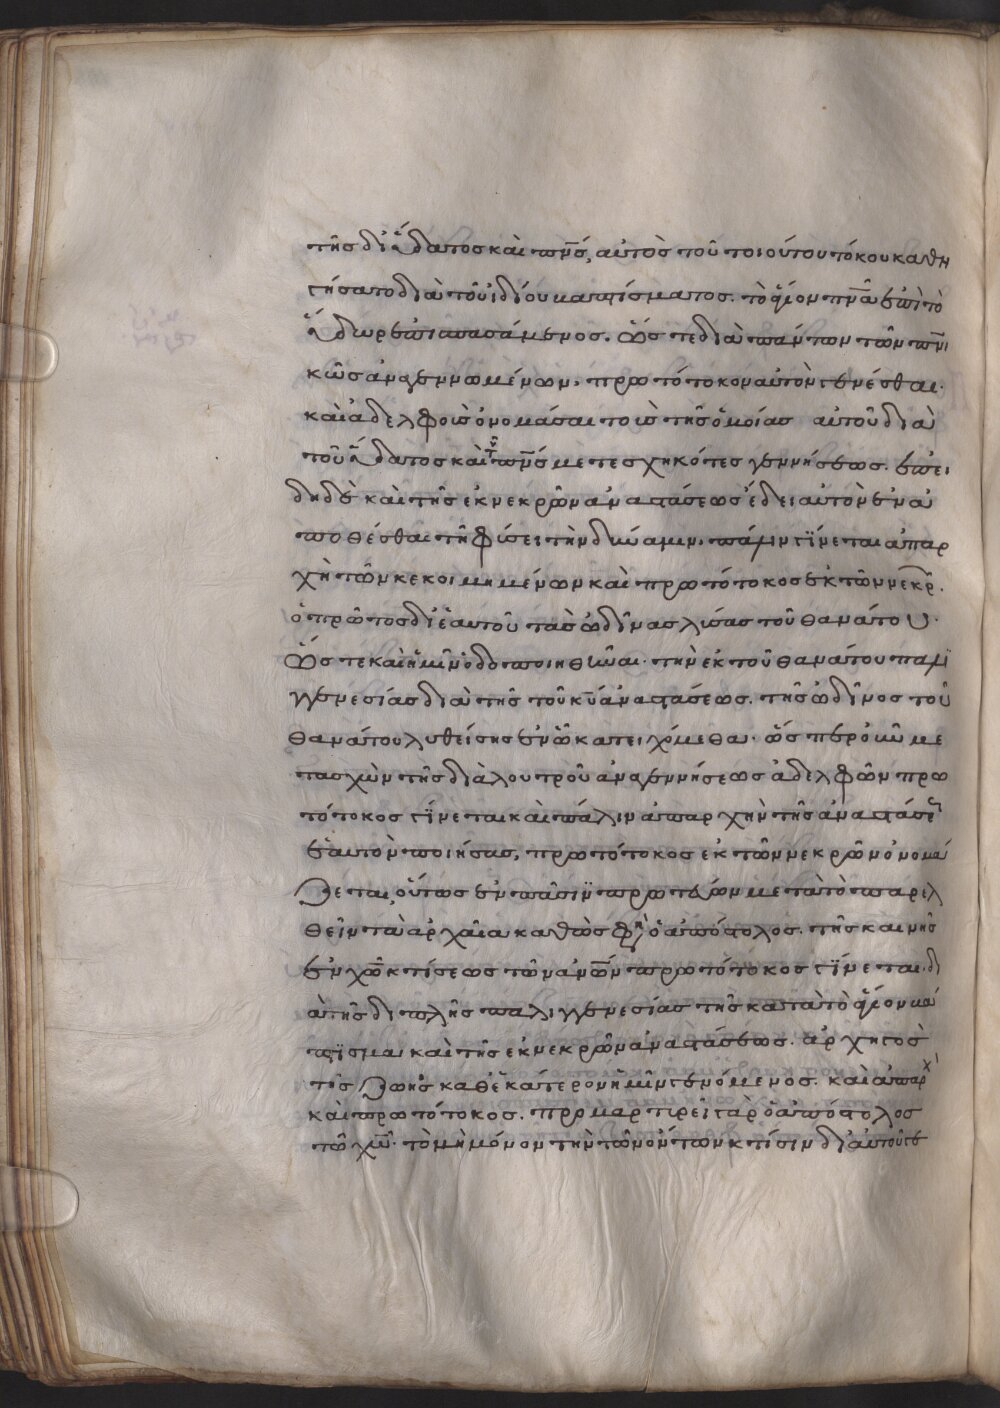 τῆς δι' ὕδατος καὶ πν̅ς, αὐτὸς τοῦ τοιούτου τόκου καθη
γήσατο διὰ τοῦ ἰδίου βαπτίσματος. τὸ ἅγιον πν̅α ἐπὶ τὸ
ὕδωρ ἐπισπασάμενος. ὥς τε διὰ πάντων τῶν πν̅ι
κῶς ἀναγεννωμένων, πρωτότοκον αὐτὸν γενέσθαι.
καὶ ἀδελφοὺς ὀνομάσαι τοῖς τῆς ὁμοίας αὐτοῦ διὰ
τοῦ ὕδατος καὶ τοῦ πν̅ς μετεσχηκότες γεννήσεως. ἐπει
δὴ δὲ καὶ τῆς ἐκ νεκρῶν ἀναστάσεως ἔδει αὐτὸν ἐνα
ποθέσθαι τῇ φύσει τὴν δύναμιν. πάλιν γίνεται ἀπαρ
χὴ τῶν κεκοιμημένων καὶ πρωτότοκος ἐκ τῶν νεκρ.
ὁ πρῶτος δι' ἑαυτοῦ τὰς ὠδῖνας λύσας τοῦ θανάτου.
ὥς τε καὶ ἡμῖν ὁδοποιηθῆναι τὴν ἐκ τοῦ θανάτου παλι
γγενεσίας διὰ τῆς τοῦ κ̅υ ἀναστάσεως. τῆς ὠδῖνος τοῦ
θανάτου λυθείσης ἐν ᾧ κατειχόμεθα. ὥσπερ οὖν με
τασχὼν τῆς διὰ λουτροῦ ἀναγεννήσεως ἀδελφῶν πρω
τότοκος γίνεται καὶ πάλιν ἀπαρχὴν τῆς ἀναστάσεως
ἑαυτὸν ποιήσας, πρωτότοκος ἐκ τῶν νεκρῶν ὀνομά
ζεται, οὕτως ἐν πᾶσιν πρωτεύων μετὰ τὸ παρελ
θεῖν τὰ ἀρχαῖα καθώς φη ὁ ἀπόστολος. τῆς καινῆς
ἐν χ̅ω κτίσεως τῶν ἀν̅ων πρωτότοκος γίνεται. δι
ὰ τῆς διπλῆς παλιγγενεσίας τῆς κατὰ τὸ ἅγιον βά
πτισμα καὶ τῆς ἐκ νεκρῶν ἀναστάσεως. ἀρχηγὸς
τῆς ζωῆς καθ' ἑκάτερον ἡμῖν γενόμενος. καὶ ἀπαρχὴ
καὶ πρωτότοκος. προμαρτυρεῖ γὰρ ὁ ἀπόστολος
τῷ χ̅ω. τὸ μὴ μόνον τὴν τῶν ὄντων κτίσιν δι' αὐτοῦ γε